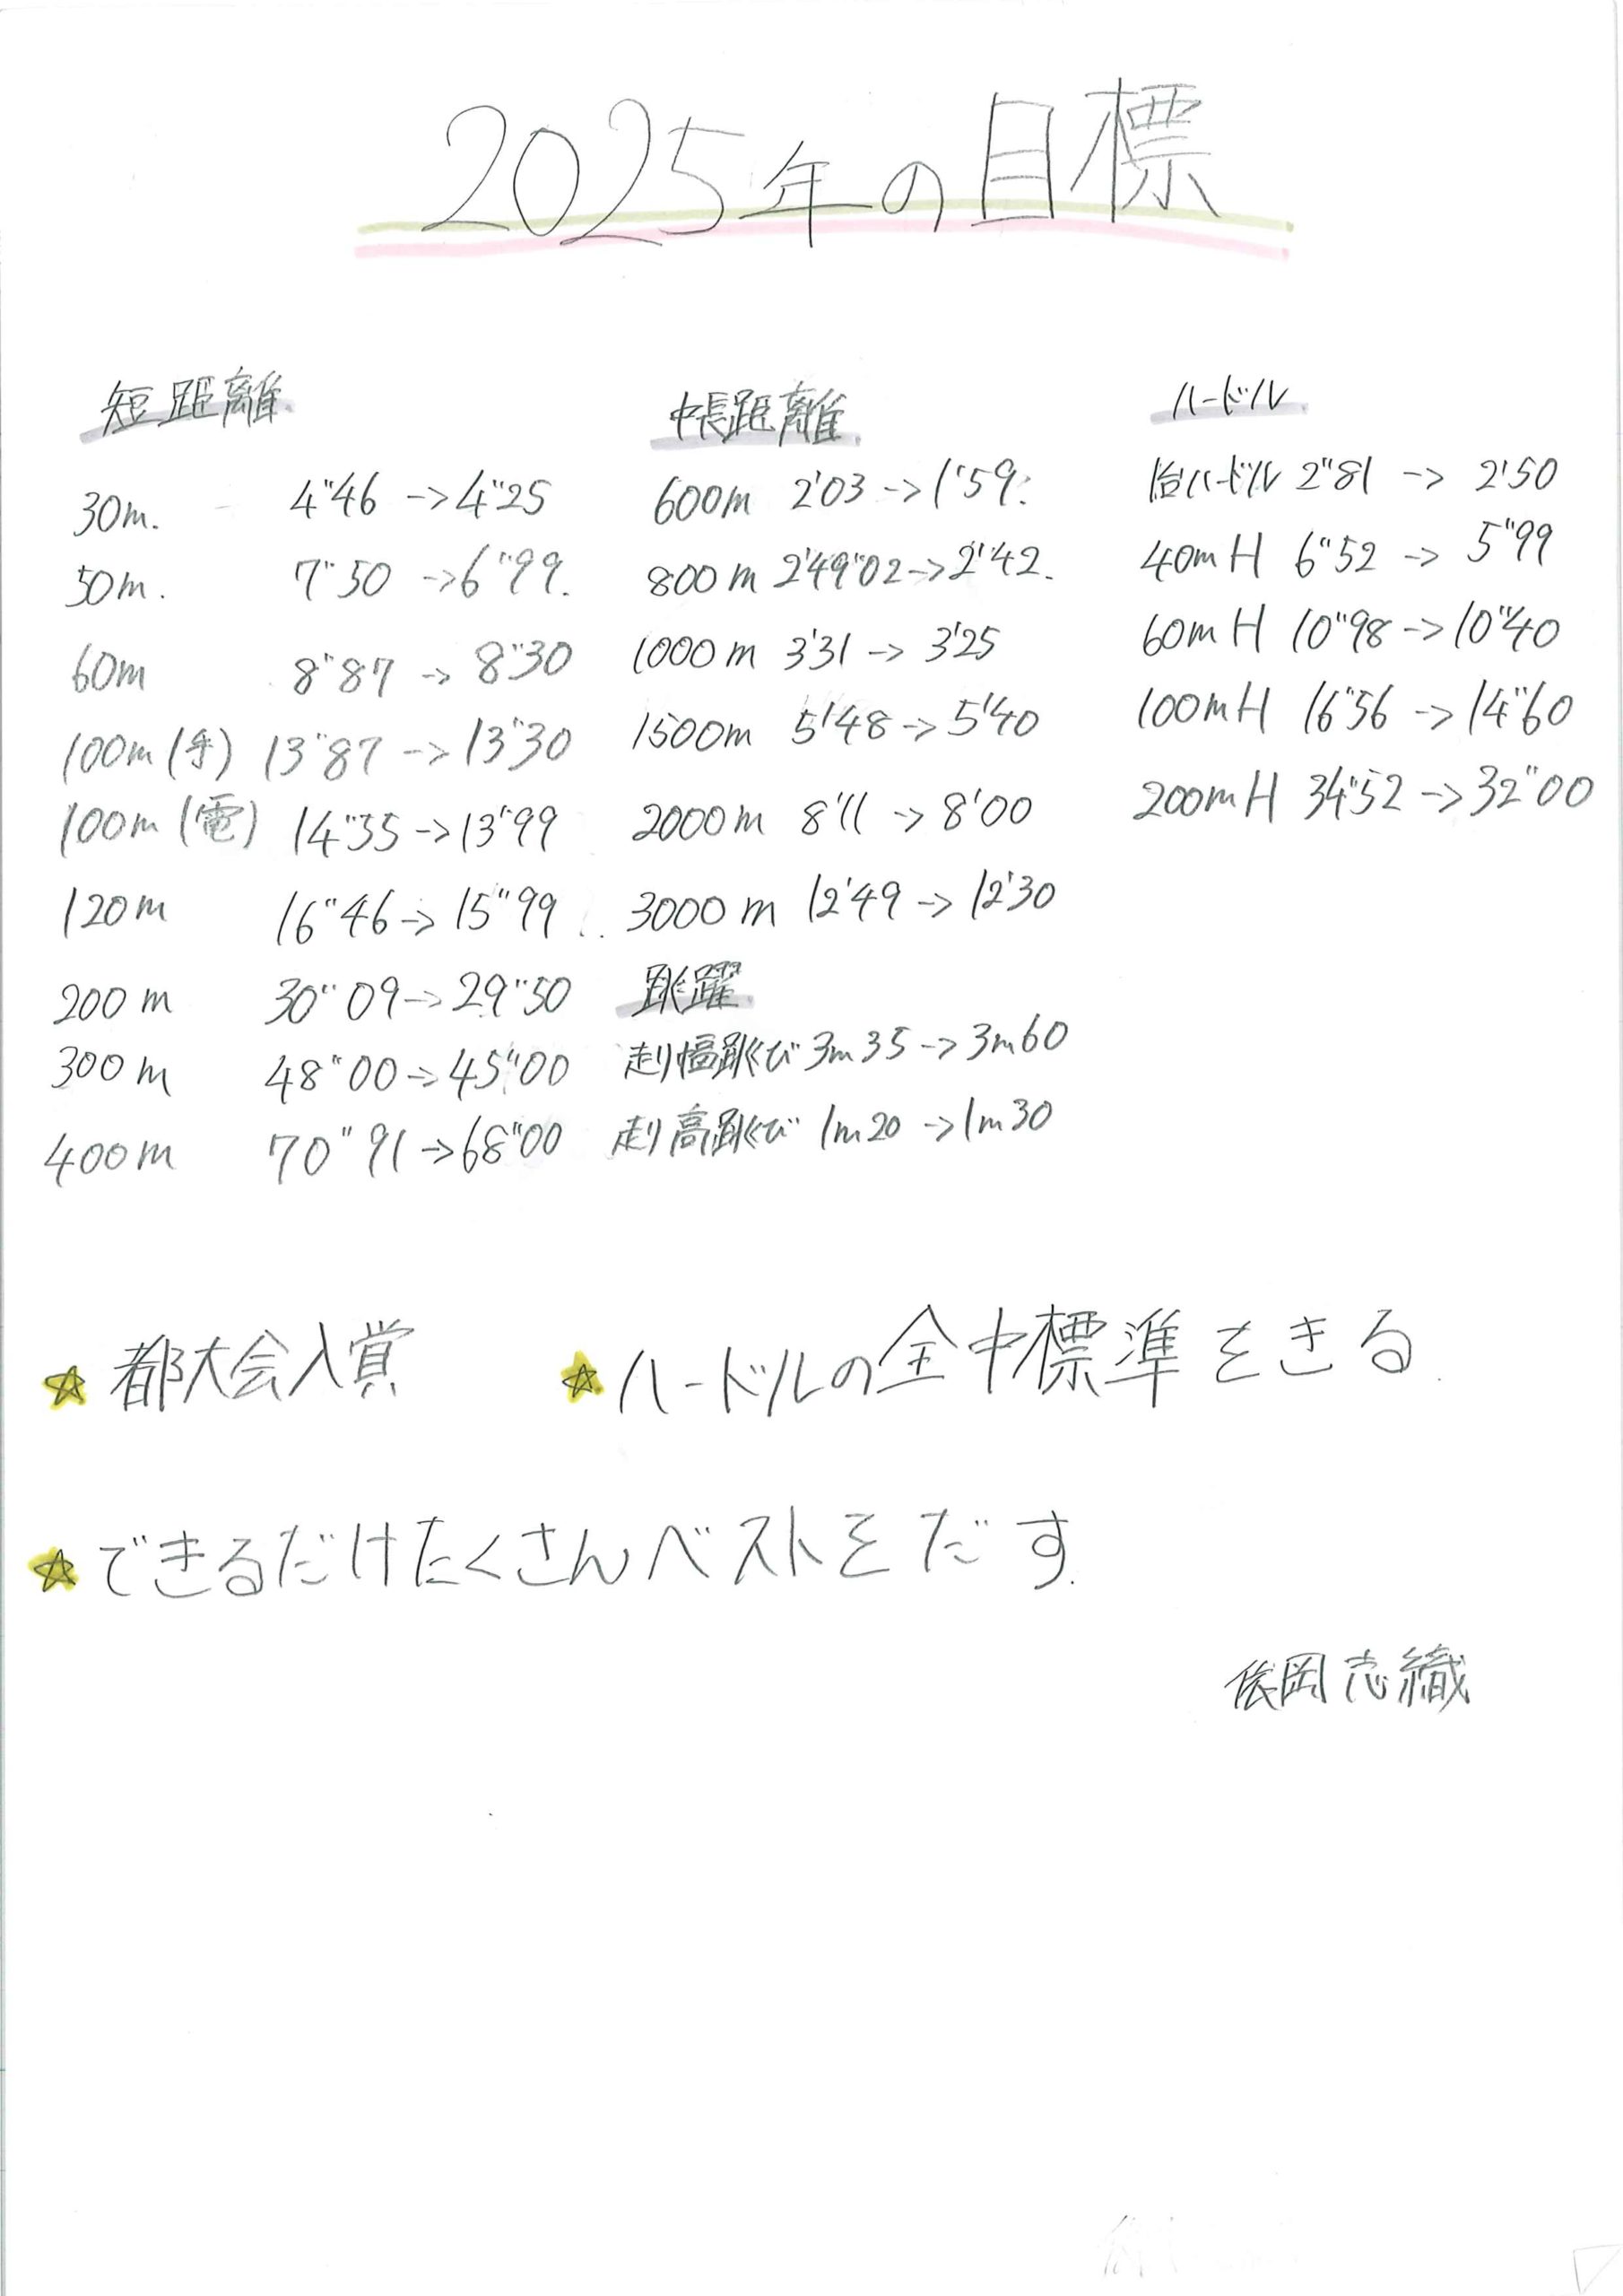 2025年の目標
短距離
30m. 4"46 -> 4"25
50m. 7"50 -> 6"99.
60m 8"87 -> 8"30
100m (手) 13"87 -> 13"30
100m (電) 14"35 -> 13"99
120m 16"46 -> 15"99
200m 30"09 -> 29"50
300m 48"00 -> 45"00
400m 70"91 -> 68"00
中長距離
600m 2'03 -> 1'59.
800m 2'49"02 -> 2'42.
1000m 3'31 -> 3'25
1500m 5'48 -> 5'40
2000m 8'11 -> 8'00
3000m 12'49 -> 12'30
跳躍
走幅跳び 3m35 -> 3m60
走高跳び 1m20 -> 1m30
ハードル
1台ハードル 2"81 -> 2'50
40mH 6"52 -> 5"99
60mH 10"98 -> 10"40
100mH 16"56 -> 14"60
200mH 34"52 -> 32"00
☆ 都大会入賞
☆ ハードルの全中標準をきる
☆ できるだけたくさんベストをだす.
俵岡志織